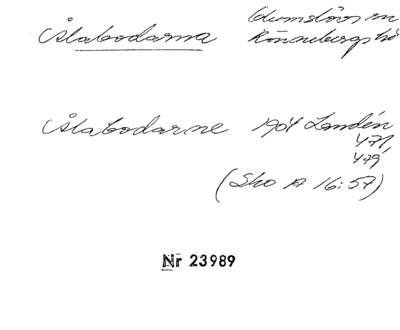 Ålabodarna Glumslövs sn
Rönnebergs hd
Ålabodarne 1904 Landén
471,
479
(Sko A 16:57)
Nr 23989